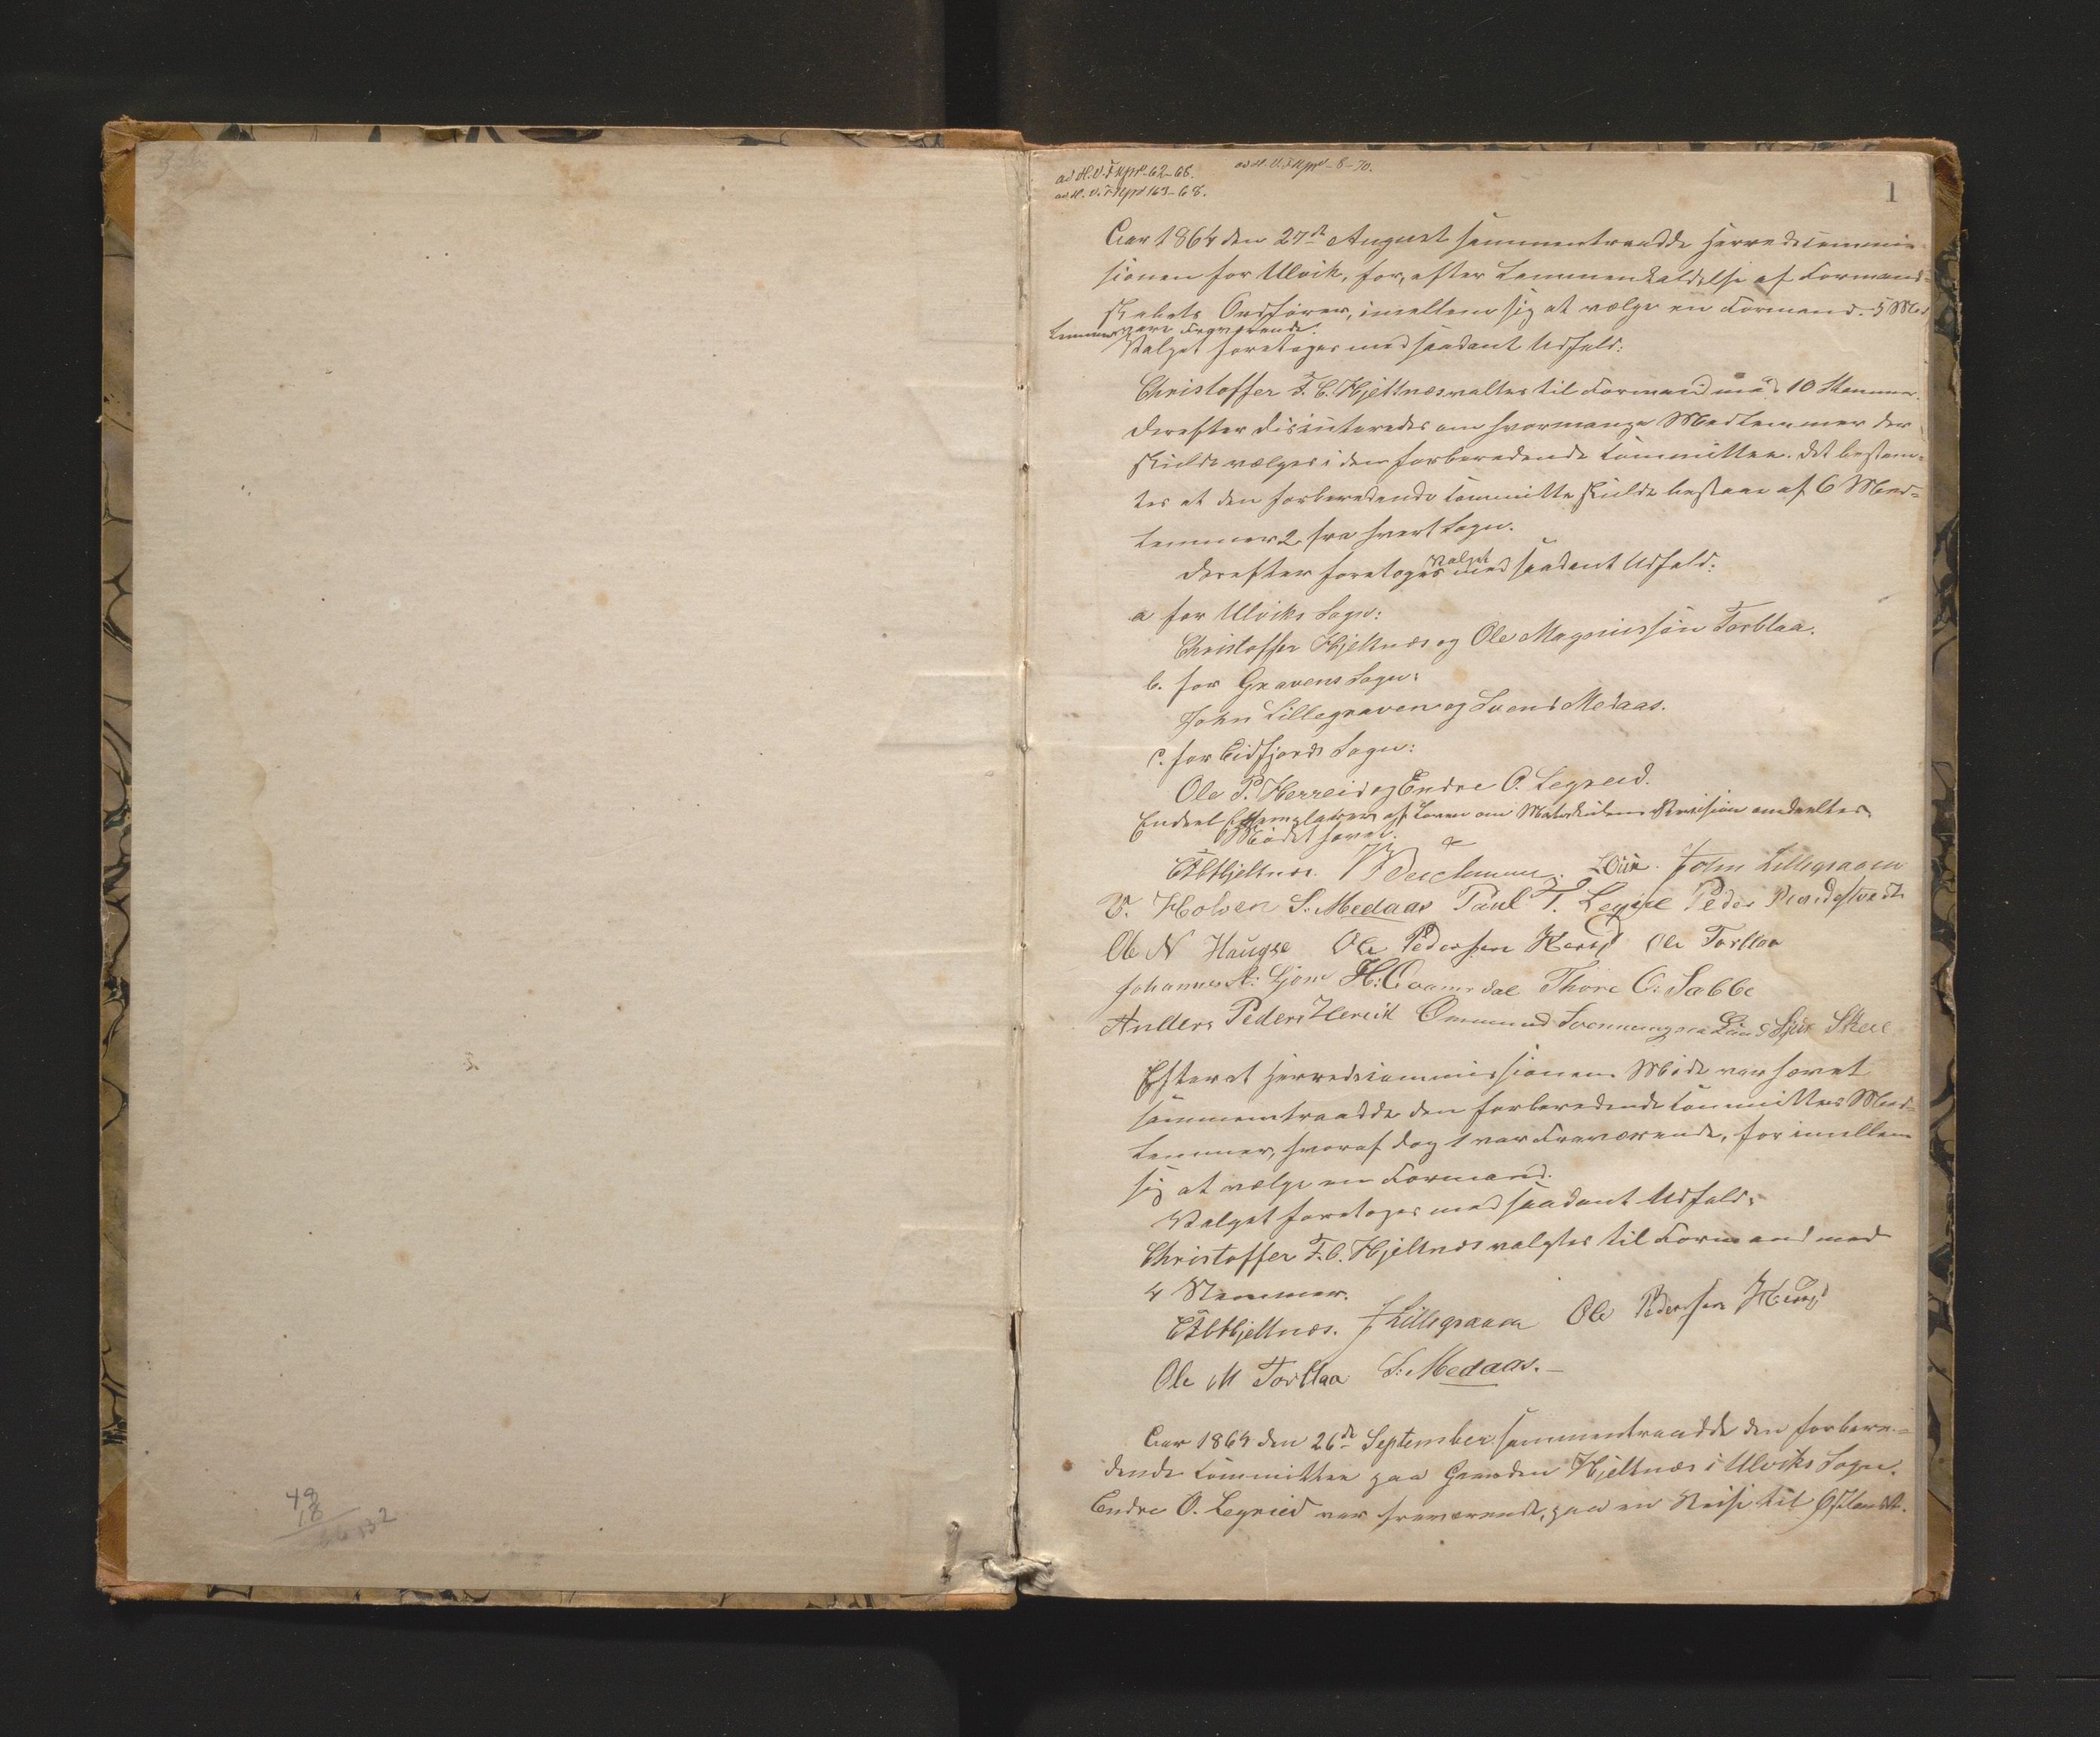 1
Aar 1864 den 27de August sammentraadte Herredscommis-
sionen for Ulvik, for, efter Sammenkaldelse af Formand-
skabets Ordfører, imellem sig at vælge en Formand. 5 Med
lemmer vare fraværende.
Valget foretoges med saadant Udfald:
Christoffer F. C. Hjeltnæs valtes til Formand med 10 Stemmer.
Derefter discuteredes om hvormange Medlemmer der
skulde vælges i den forberedende Committee. Det bestem-
tes at den forberedende Committe skulde bestaae af 6 Med-
lemmer 2 fra hvert Sogn.
Derefter foretoges Valget med saadant Udfald:
a for Ulviks Sogn:
Christoffer Hjeltnæs og Ole Magnussøn Torblaa.
b. for Gravens Sogn:
John Lillegraven og Svend Medaas.
c. for Eidfjords Sogn:
Ole P. Herreid og Endre O. Legreid.
Endeel Exemplarer af Loven om Matrikulens Revision omdeeltes
Mødet hævet.
CFCHjeltnæs. John Lillegraven
S. Medaas Paul T. Peder
Ole N Haugse Ole Pedersen Ole Torblaa
Johannes Thore O. Sæbbe
Anders Peders Hereid Sjur
Efterat Herredscommissionens Møde var hævet
sammentraadte den forberedende Committees Med-
lemmer, hvoraf dog 1 var fraværende, for imellem
sig at vælge en Formand.
Valget foretoges med saadant Udfald:
Christoffer F. C. Hjeltnæs valgtes til Formand med
4 Stemmer.
CFCHjeltnæs. J Lillegraven Ole Pedersen
Ole M Torblaa S. Medaas.
Aar 1864 den 26de September sammentraadte den forbere-
dende Committee paa Gaarden Hjeltnæs i Ulviks Sogn.
Endre O. Legreid var fraværende, paa en Reise til Østlandet.
48
18